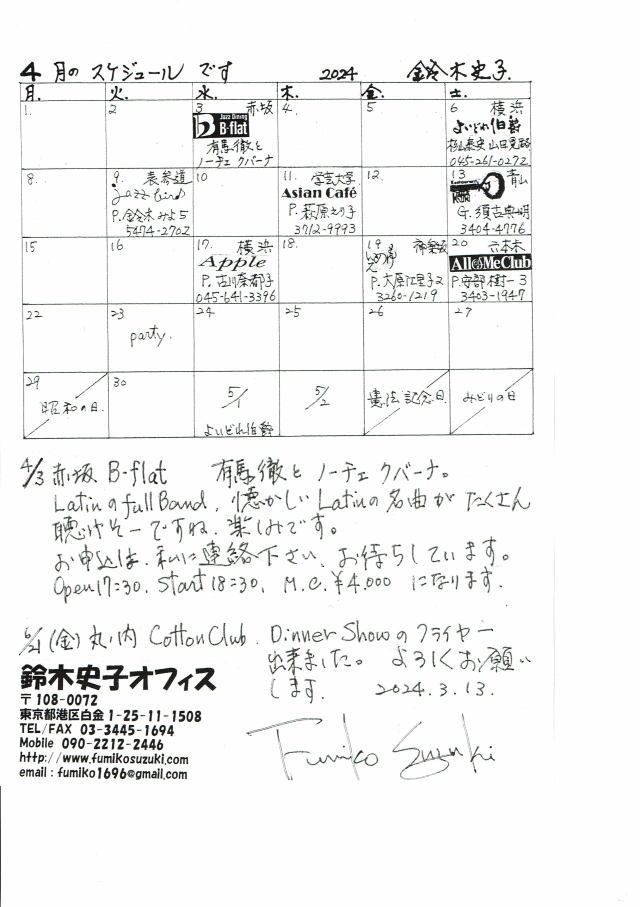 4月のスケジュールです 2024 鈴木史子
月. 火. 水. 木. 金. 土.
1. 2 3 赤坂 4. 5 6 横浜
Jazz Dining B-flat
有馬徹と
ノーチェ クバーナ
よいどれ伯爵
045-261-0272
8. 9. 表参道 10 11. 学芸大学 12. 13 青山
Jazz bird
P. 鈴木みよ5
5474-2702
Asian Café
P. 萩原えり子
3712-9993
G. 須古典明
3404-4776
15 16 17. 横浜 18. 19 神楽坂 20 六本木
Apple
P. 古川奈都子
045-641-3396
P. 大原江里子
3260-1219
All of Me Club
P. 守部樹一 3
3403-1947
22 23 24 25 26 27
party.
29 30 5/1 5/2
昭和の日. 憲法記念日 みどりの日
よいどれ伯爵
4/3 赤坂 B-flat 有馬徹とノーチェクバーナ。
Latinのfull Band. 懐かしいLatinの名曲がたくさん
聴けそーですね. 楽しみです。
お申込は. 私に連絡下さい. お待ちしています。
Open 17=30. Start 18=30. M.C. ¥4.000 になります.
6/21 (金) 丸ノ内 Cotton Club. Dinner Showのフライヤー
出来ました。よろしくお願い
します. 2024.3.13.
鈴木史子オフィス
〒108-0072
東京都港区白金1-25-11-1508
TEL/FAX 03-3445-1694
Mobile 090-2212-2446
http://www.fumikosuzuki.com
email : fumiko1696@gmail.com
Fumiko Suzuki